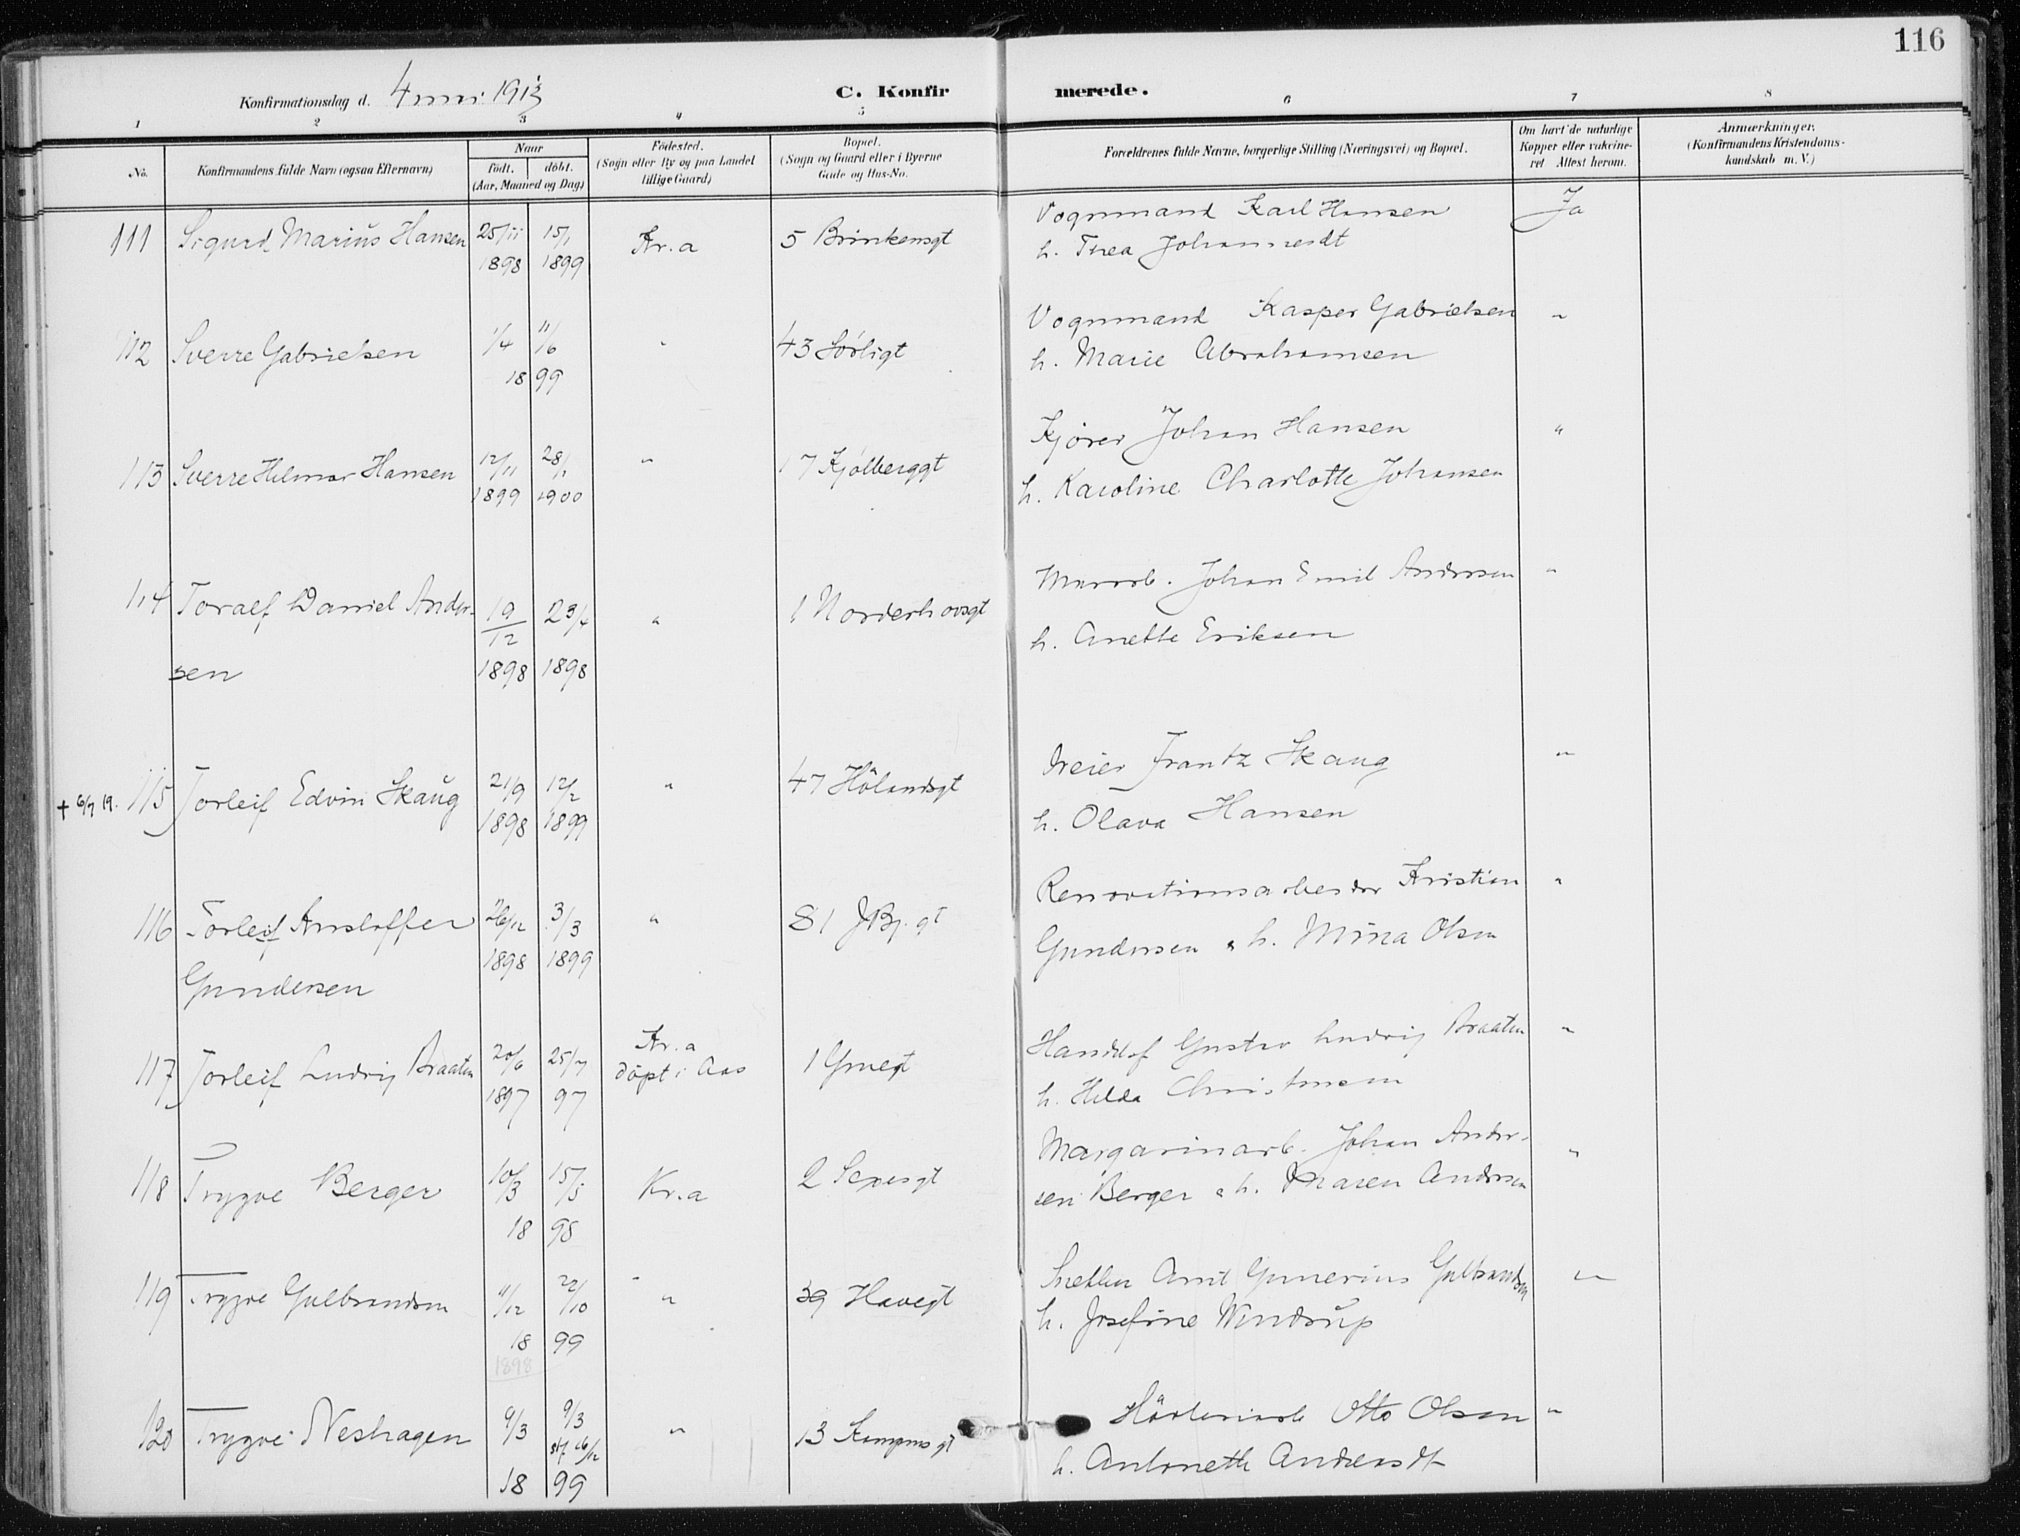 116
Konfirmationsdag d. 4 mai 1913
C. Konfirmerede.
1 2 3 4 5 6 7 8
No.
Konfirmandens fulde Navn (ogsaa Efternavn)
Naar
født. døbt.
(Aar, Maaned og Dag)
Fødested.
(Sogn eller By og paa Landet
tillige Gaard)
Bopæl.
(Sogn og Gaard eller i Byerne
Gade og Hus-No.
Forældrenes fulde Navne, borgerlige Stilling (Næringsvei) og Bopæl.
Om havt de naturlige
Kopper eller vakcine-
ret Attest herom.
Anmærkninger.
(Konfirmandens Kristendoms-
kundskab m. V.)
111 Sigurd Marius Hansen 25/11 15/1 Kr.a 5 Brinkensgt Vognmand Karl Hansen Ja
1898 1899 h. Thea Johannesdt
112 Sverre Gabrielsen 1/4 11/6 " 43 Sørligt Vognmand Kasper Gabrielsen "
18 99 h. Marie Abrahamsen
113 Sverre Hilmar Hansen 12/11 28/1 " 17 Kjølberggt Kjører Johan Hansen "
1899 1900 h. Karoline Charlotte Johansen
114 Toralf Daniel Ander- 19/12 23/4 " 1 Norderhovsgt Murarb. Johan Emil Andersen "
sen 1898 1898 h. Anette Eriksen
+ 6/7 19. 115 Torleif Edvin Skaug 21/9 12/2 " 47 Hølandsgt Dreier Frantz Skaug "
1898 1899 h. Olava Hansen
116 Torleif Anstoffer 26/12 3/3 " 81 JBj. gt Renovationsarbeider Kristian "
Gundersen 1898 1899 " Gundersen & h. Mina Olsen
117 Torleif Ludvig Braaten 20/6 25/7 Kr.a 1 Gruegt Gustav Ludvig Braaten "
1897 97 døpt i Aas h. Hilda Christensen
118 Trygve Berger 10/3 15/5 Kr.a 2 Sexesgt Margarinarb. Johan Ander- "
18 98 sen Berger & h. Maren Andersen
119 Trygve Gulbrandsen 11/12 22/10 " 39 Havegt Snekker Gunerius Gulbrandsen "
18 99 h. Josefine Windrup
1898
120 Trygve Neshagen 9/3 9/3 " 13 Kampensgt Otto Olsen "
st. 26/12
18 99 h. Antonette Andersdt